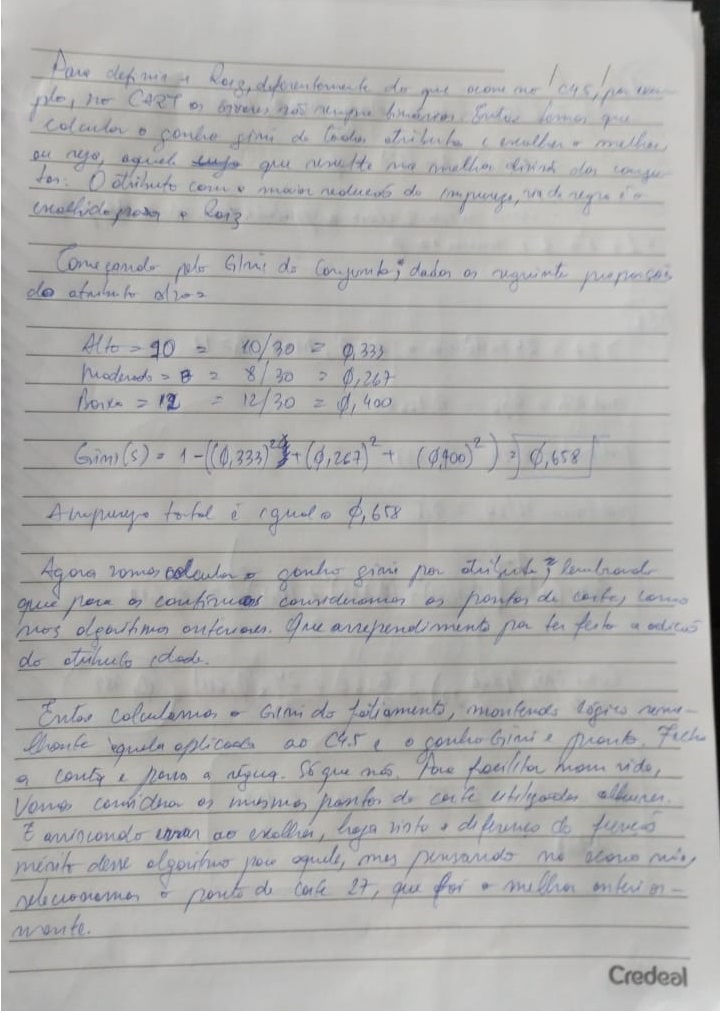 Para definir a Raiz, diferentemente do que ocorre no C4.5, por exem-
plo, no CART as árvores são sempre binárias. Então temos que
calcular o ganho gini de todos atributos e escolher o melhor,
ou seja, aquele que na melhor divisão dos conju-
tos. O atributo com a maior redução da impureza, via de regra é o
escolhido para a Raiz.
Começando pelo Gini do Conjunto, dados as seguinte proporções
do atributo alvo:
Alto = 10 = 10/30 = 0,333
Moderado = 8 = 8/30 = 0,267
Baixa = 12 = 12/30 = 0,400
Gini(S) = 1 - ((0,333)² + (0,267)² + (0,400)²) = 0,658
A impureza total é igual a 0,658
Agora vamos calcular o ganho gini por atributo, lembrando
que para os contínuos consideramos os pontos de corte, como
nos algoritmos anteriores. Que arrependimento por ter feito a adição
do atributo idade.
Então calculamos o Gini do fatiamento, montando lógica seme-
lhante àquela aplicada ao C4.5 e o ganho Gini e pronto. Fecha
a conta e passa a régua. Só que não. Para facilitar a vida,
Vamos considerar os mesmos pontos de corte utilizados alhures.
E arriscando errar ao escolher, haja vista a diferença da função
mérito desse algoritmo para aquele, mas pensando no
selecionamos o ponto de corte 27, que foi o melhor anterior-
mente.
Credeal